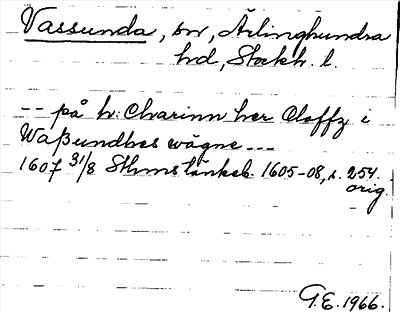 Vassunda, sn, Ärlinghundra
hd, Stockh. l.
-- på h: Charinn her Oloffz i
Waßundhes wägne ---
1607 31/8 Sthms tänkeb. 1605-08, s. 254.
orig.
G.E. 1966.